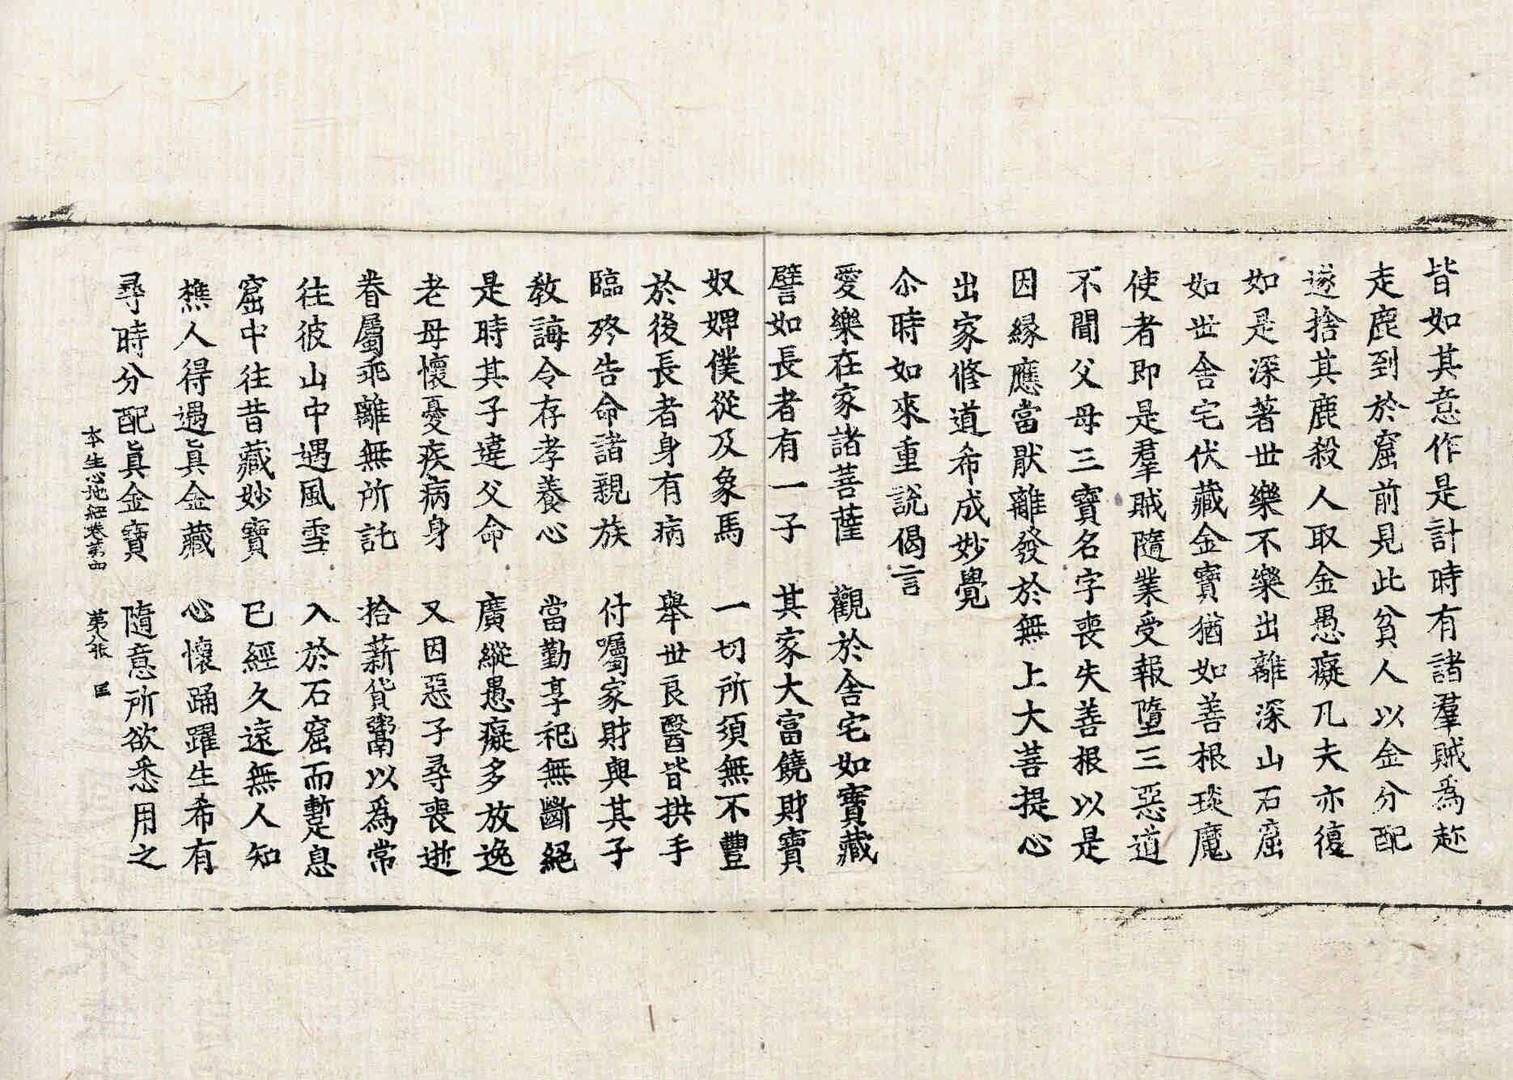 皆如其意作是計時有諸羣賊爲趂
走鹿到於窟前見此貧人以金分配
遂捨其鹿殺人取金愚癡凡夫亦復
如是深著世樂不樂出離深山石窟
如世舍宅伏藏金寶猶如善根琰魔
使者即是羣賊隨業受報墮三惡道
不聞父母三寶名字喪失善根以是
因緣應當猒離發於無上大菩提心
出家修道希成妙覺
尒時如來重說偈言
愛樂在家諸菩薩　觀於舍宅如寶藏
譬如長者有一子　其家大富饒財寶
奴婢僕從及象馬　一切所須無不豐
於後長者身有病　舉世良醫皆拱手
臨終告命諸親族　付囑家財與其子
教誨令存孝養心　當勤享祀無斷絕
是時其子違父命　廣縱愚癡多放逸
老母懷憂疾病身　又因惡子尋喪逝
眷屬乖離無所託　拾薪貨鬻以爲常
往彼山中遇風雪　入於石窟而暫息
窟中往昔藏妙寶　已經久遠無人知
樵人得遇眞金藏　心懷踊躍生希有
尋時分配眞金寶　隨意所欲悉用之
本生心地經卷第四　第八張　匡